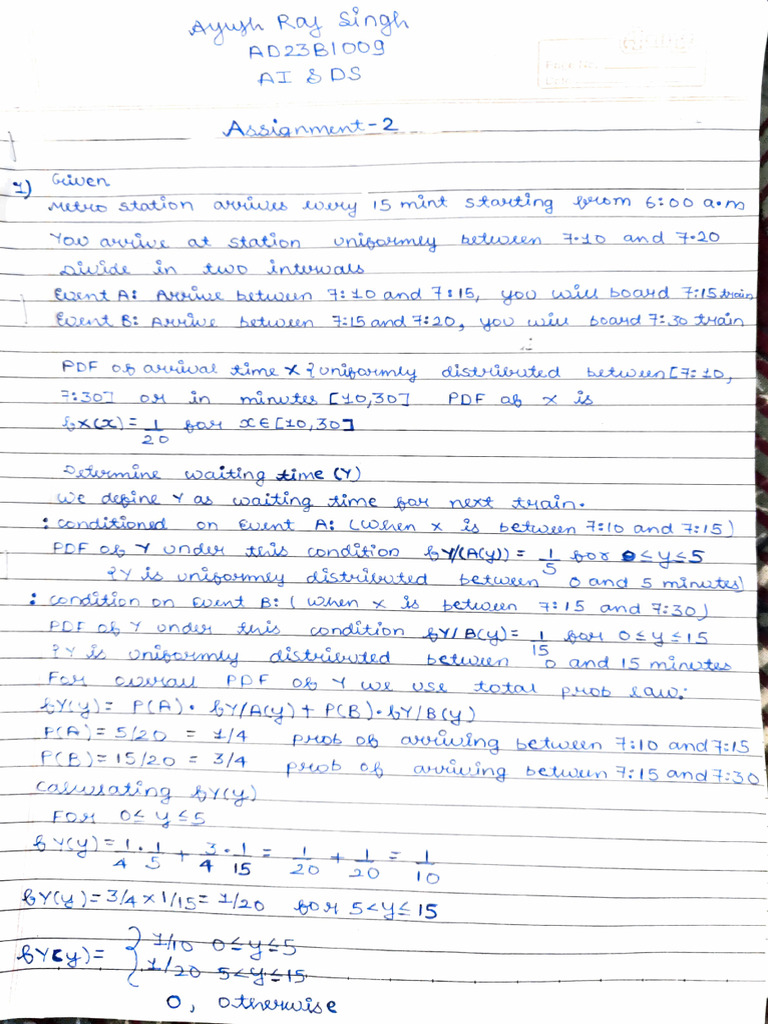 Ayush Raj Singh
AD23B1009
AI & DS
Assignment-2
1) Given
Metro station arrives every 15 mint starting from 6:00 a.m
You arrive at station uniformly between 7.10 and 7.20
Divide in two intervals
Event A: Arrive between 7:10 and 7:15, you will board 7:15 train
Event B: Arrive between 7:15 and 7:20, you will board 7:30 train
PDF of arrival time X {uniformly distributed between [7:10,
7:30] or in minutes [10,30] PDF of X is
fX(x) = 1/20 for x∈[10,30]
Determine waiting time (Y)
We define Y as waiting time for next train.
: conditioned on Event A: (when X is between 7:10 and 7:15)
PDF of Y under this condition fY/(A(y)) = 1/5 for 0≤y≤5
{Y is uniformly distributed between 0 and 5 minutes)
: condition on Event B: (when X is between 7:15 and 7:30)
PDF of Y under this condition fY/B(y) = 1/15 for 0≤y≤15
{Y is uniformly distributed between 0 and 15 minutes
For overall PDF of Y we use total prob law:
fY(y) = P(A)·fY/A(y) + P(B)·fY/B(y)
P(A) = 5/20 = 1/4 prob of arriving between 7:10 and 7:15
P(B) = 15/20 = 3/4 prob of arriving between 7:15 and 7:30
Calculating fY(y)
For 0≤y≤5
fY(y) = 1/4 · 1/5 + 3/4 · 1/15 = 1/20 + 1/20 = 1/10
fY(y) = 3/4 × 1/15 = 1/20 for 5<y≤15
fY(y) = { 1/10 0≤y≤5
1/20 5<y≤15
0, otherwise